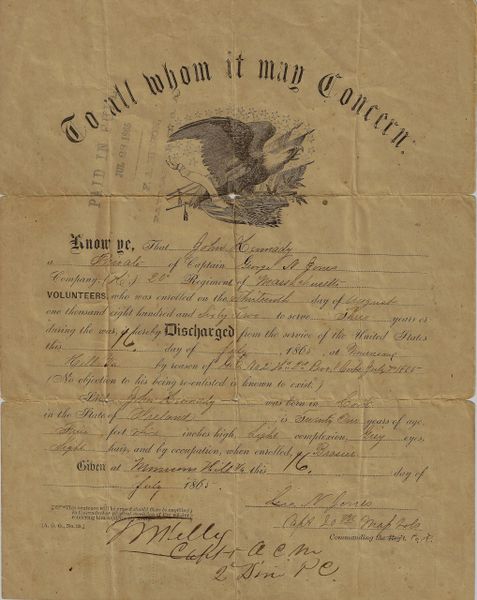 To all whom it may Concern.
PAID IN
JUL 29 1865
Know ye, That John Kennady
a Private of Captain George N. Jones
Company, (K,) 20th Regiment of Massachusetts
VOLUNTEERS, who was enrolled on the thirteenth day of August
one thousand eight hundred and sixty two to serve Three years or
during the war, is hereby Discharged from the service of the United States
this 16 day of July, 1865, at
Hill Va by reason of No 2 July 1865
(No objection to his being re-enlisted is known to exist.)
Said John Kennady was born in Cork
in the State of Ireland is Twenty One years of age,
Five feet inches high, Light complexion, Grey eyes,
Light hair, and by occupation, when enrolled, a
Given at Hill Va this 16 day of
July 1865.
[A. G. O., No. 99.]
Geo N. Jones
Capt 20th Mass Vols
Commanding the Regt.
Capt & A C M
2d Div